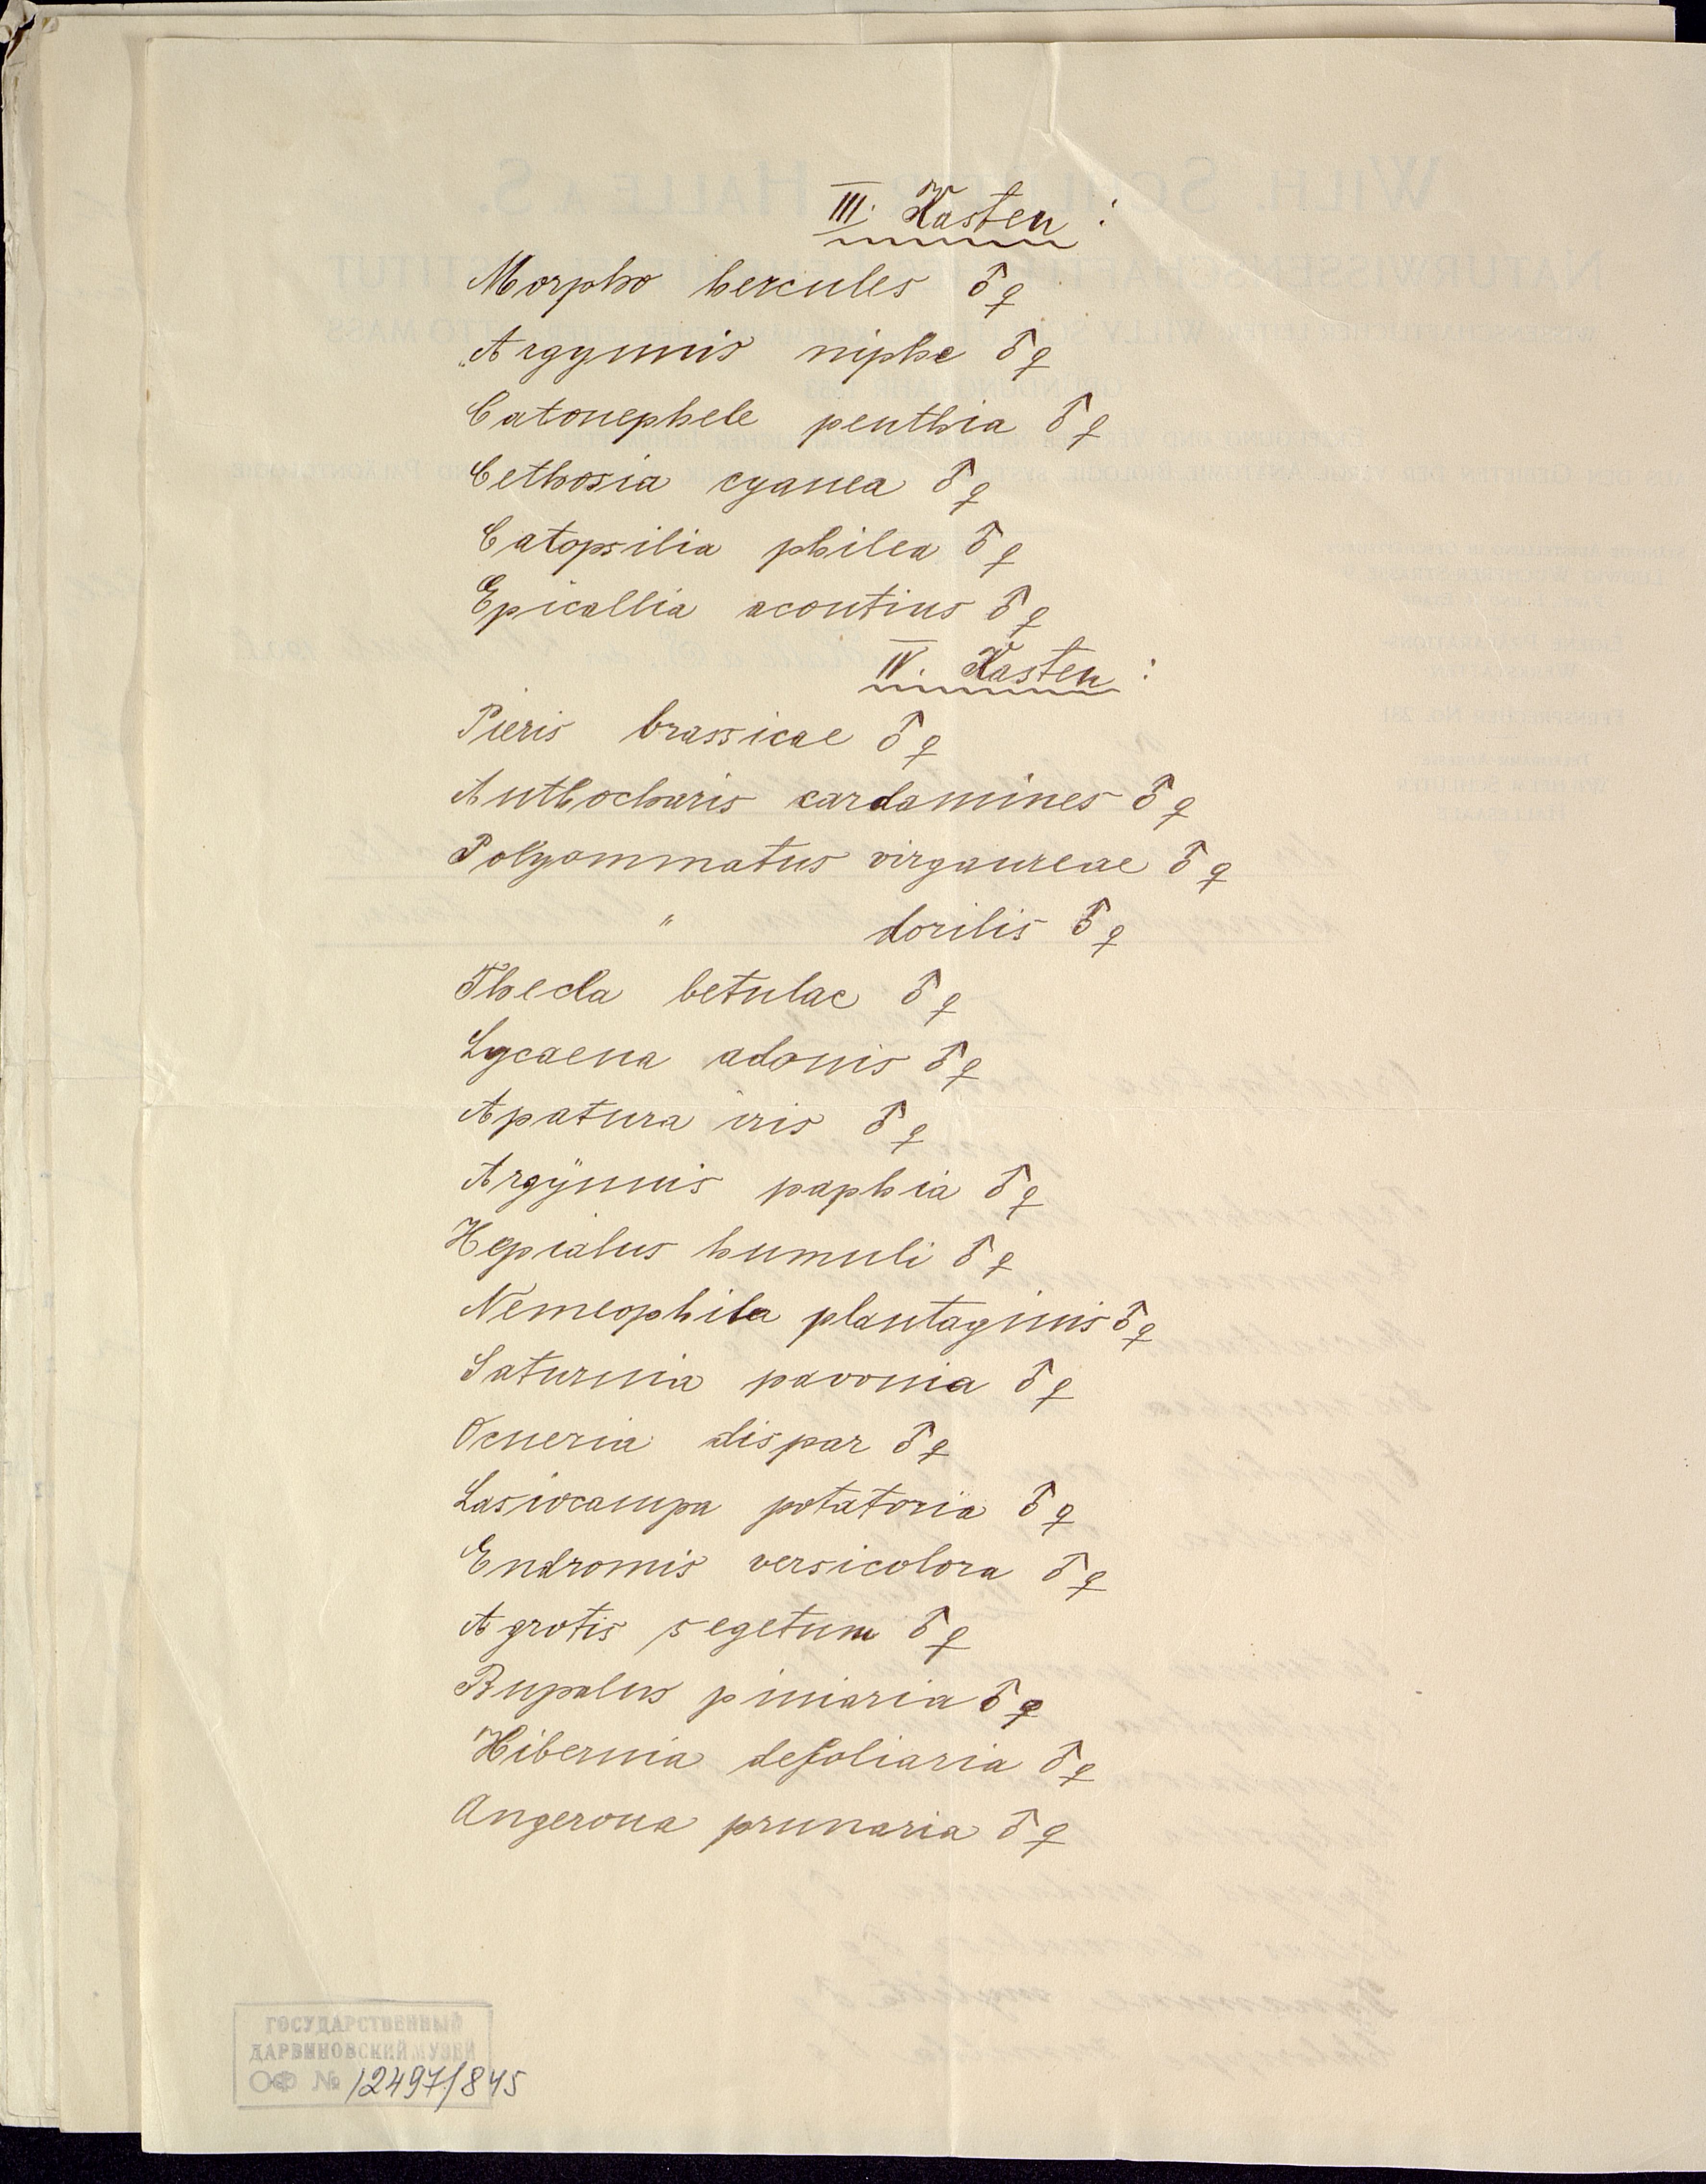 III. Kasten :
Morpho hercules ♂♀
Argynnis niphe ♂♀
Catonephele penthia ♂♀
Cethosia cyanea ♂♀
Catopsilia philea ♂♀
Epicallia acontius ♂♀
IV. Kasten :
Pieris brassicae ♂♀
Anthocharis cardamines ♂♀
Polyommatus virgaureae ♂♀
" dorilis ♂♀
Thecla betulae ♂♀
Lycaena adonis ♂♀
Apatura iris ♂♀
Argynnis paphia ♂♀
Hepialus humuli ♂♀
Nemeophila plantaginis ♂♀
Saturnia pavonia ♂♀
Ocneria dispar ♂♀
Lasiocampa potatoria ♂♀
Endromis versicolora ♂♀
Agrotis segetum ♂♀
Bupalus piniaria ♂♀
Hibernia defoliaria ♂♀
Angerona prunaria ♂♀
ГОСУДАРСТВЕННЫЙ
ДАРВИНОВСКИЙ МУЗЕЙ
ОФ № 12497/845